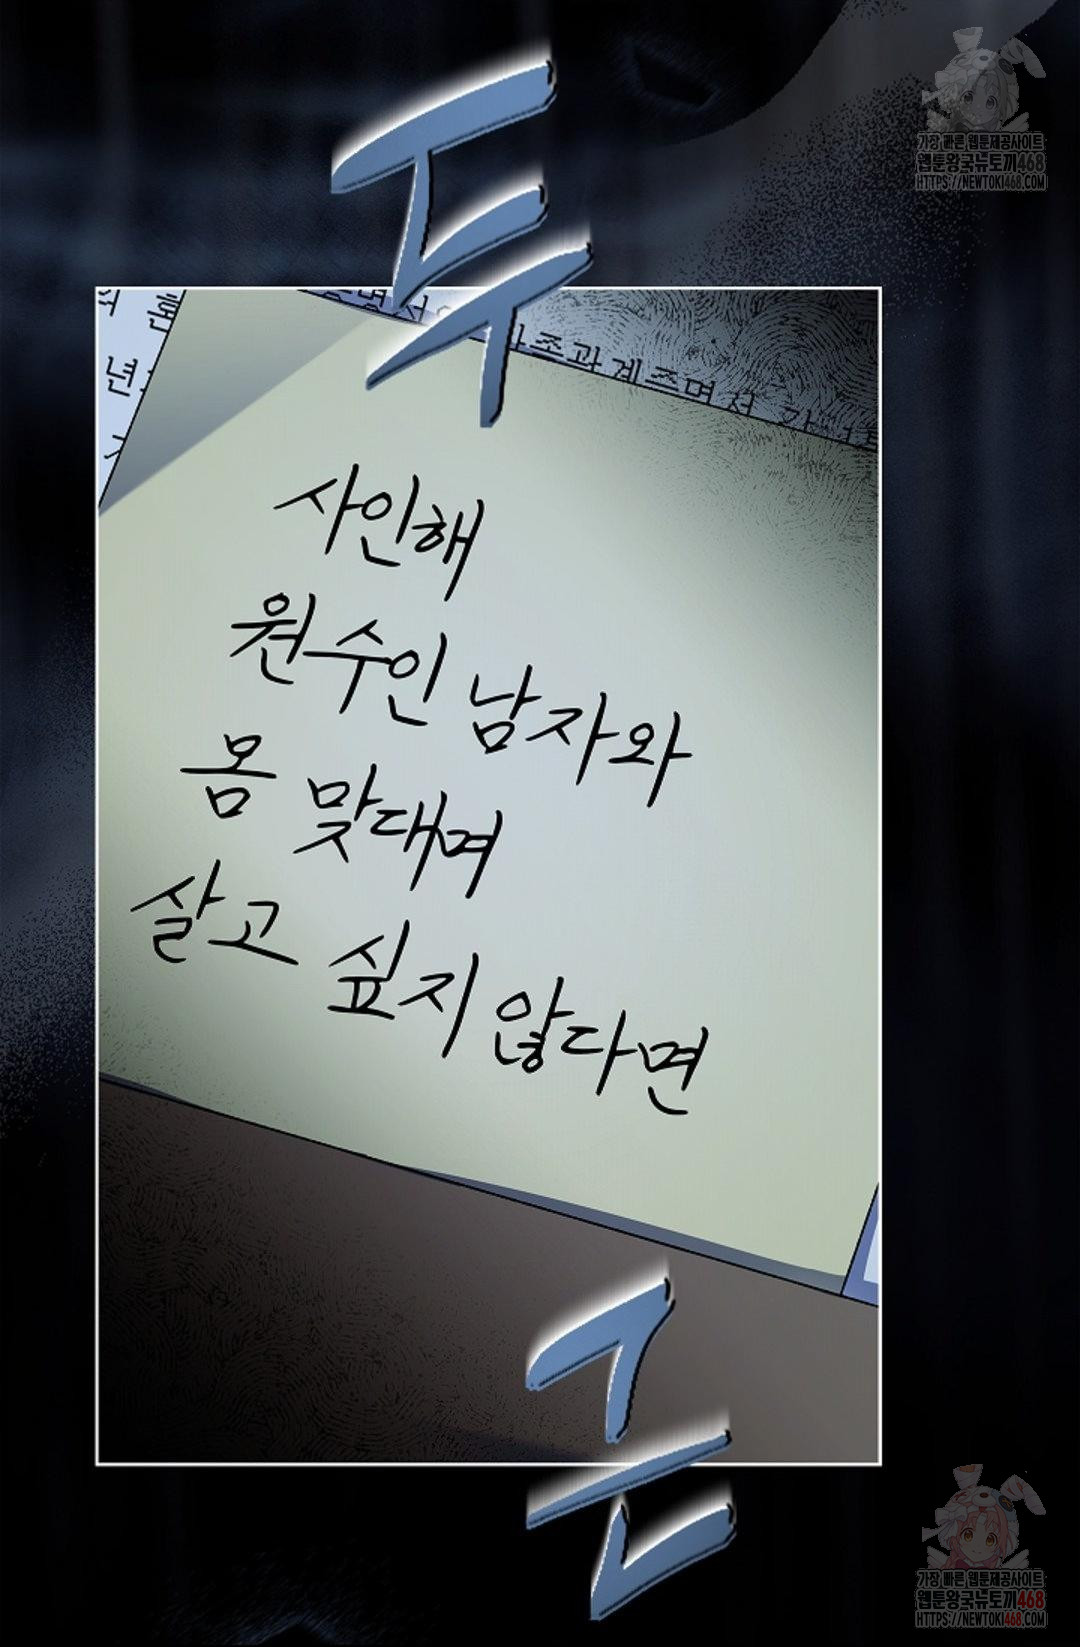 가장 빠른 웹툰제공사이트
웹툰왕국뉴토끼468
HTTPS://NEWTOKI468.COM
두
년
증명서
관계증명서
사인해
원수인 남자와
몸 맞대며
살고 싶지 않다면
근
가장 빠른 웹툰제공사이트
웹툰왕국뉴토끼468
HTTPS://NEWTOKI468.COM